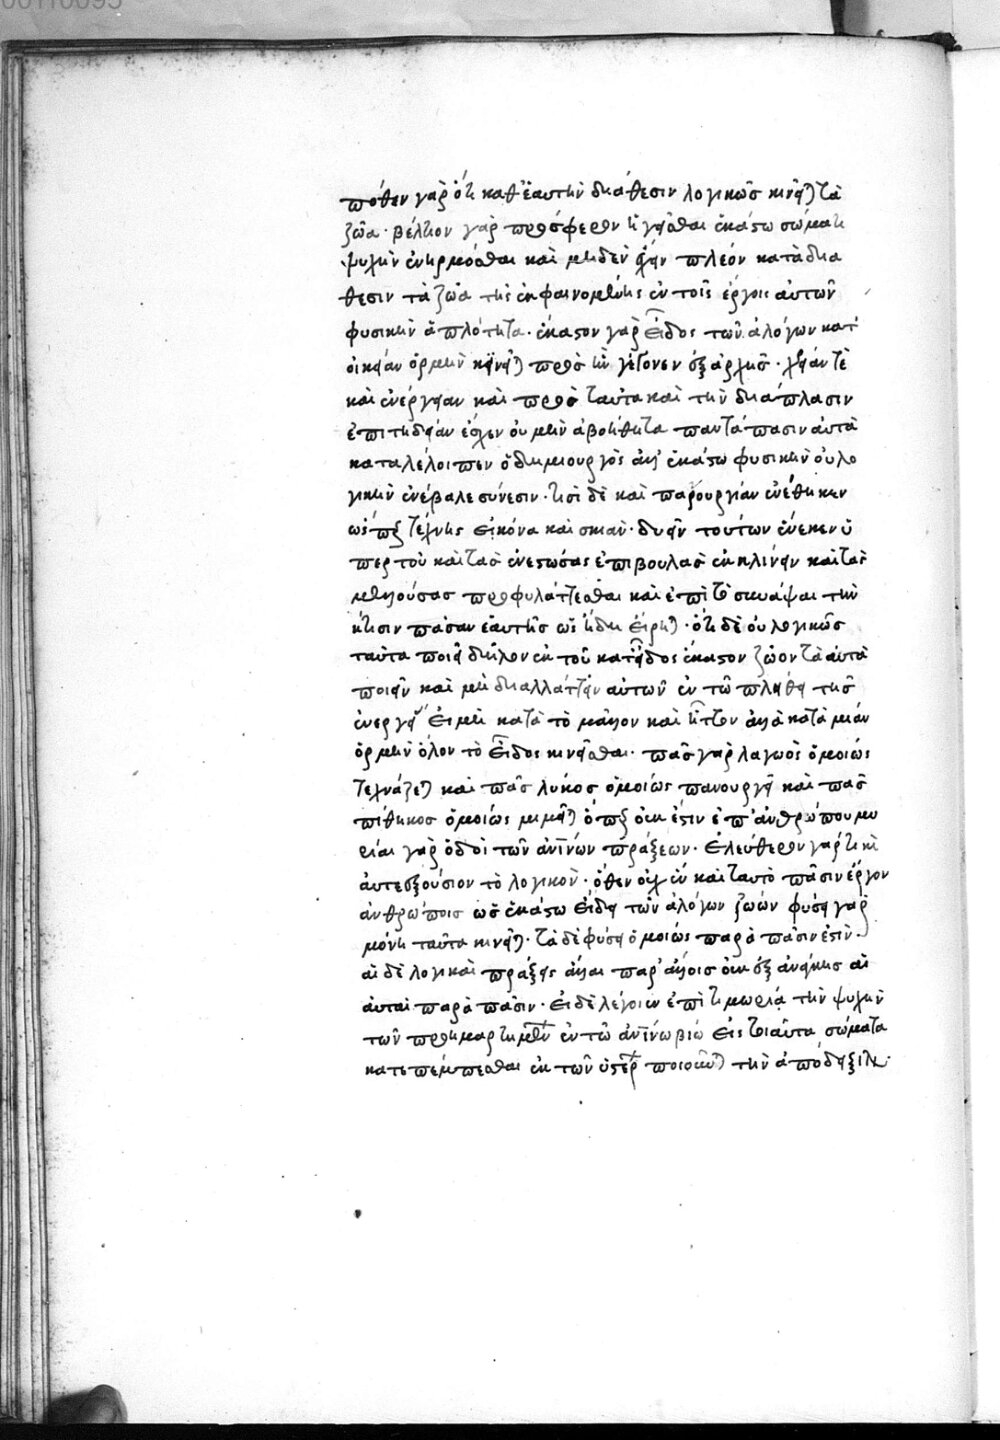 πόθεν γὰρ ὅτι καθ' ἑαυτὴν διάθεσιν λογικῶς κινεῖται τὰ
ζῶα· βέλτιον γὰρ προσφέρον ἡγεῖσθαι ἑκάστω σώματι
ψυχὴν ἐνηρμόσθαι καὶ μηδὲν ἔχειν πλέον κατὰ διά
θεσιν τὰ ζῶα τῆς ἐκφαινομένης ἐν τοῖς ἔργοις αὐτῶν
φυσικὴν ἁπλότητα· ἕκαστον γὰρ εἶδος τῶν ἀλόγων κατ'
οἰκείαν ὁρμὴν κινεῖται πρὸς ἣν γέγονεν ἐξ ἀρχῆς· χρείαν τὲ
καὶ ἐνέργειαν καὶ πρὸς ταῦτα καὶ τὴν διάπλασιν
ἐπιτηδείαν ἔσχεν οὐ μὴν ἀβοήθητα παντάπασιν αὐτὰ
καταλέλοιπεν ὁ δημιουργὸς ἀλλ' ἑκάστω φυσικὴν οὐ λο
γικὴν ἐνέβαλε σύνεσιν· τισὶ δὲ καὶ πανουργίαν ἐνέθηκεν
ὥσπερ τέχνης εἰκόνα καὶ σκιὰν· δυεῖν τούτων ἕνεκεν ὑ
περ τοῦ καὶ τὰς ἐνεστώσας ἐπιβουλὰς ἐκκλίνειν καὶ τὰς
μελλούσας προφυλάττεσθαι καὶ ἐπὶ τὸ σκυάψαι τὴν
κτίσιν πᾶσαν ἑαυτῆς ὡς ἤδη εἴρηται· ὅτι δὲ οὐ λογικῶς
ταῦτα ποιεῖ δῆλον ἐκ τοῦ κατ' εἶδος ἕκαστον ζῶον τὰ αὐτὰ
ποιεῖν καὶ μὴ διαλλάττειν αὐτῶν ἐν τῶ πλήθει τῆς
ἐνεργείας εἰ μὴ κατὰ τὸ μᾶλλον καὶ ἧττον ἀλλὰ κατὰ μίαν
ὁρμὴν ὅλον τὸ εἶδος κινεῖσθαι· πᾶς γὰρ λαγωὸς ὁμοίως
τεχνάζεται καὶ πᾶς λύκος ὁμοίως πανουργεῖ καὶ πᾶς
πίθηκος ὁμοίως μιμεῖται ὅπερ οὐκ ἔστιν ἐπ' ἀνθρώπου μυ
ρίαι γὰρ ὁδοὶ τῶν ἀνθρωπίνων πράξεων· ἐλεύθερον γάρ τι καὶ
αὐτεξούσιον τὸ λογικὸν· ὅθεν οὐχ ἓν καὶ ταυτὸ πᾶσιν ἔργον
ἀνθρώποις ὡς ἑκάστω εἴδει τῶν ἀλόγων ζώων φύσει γὰρ
μόνη ταῦτα κινεῖται· τὰ δὲ φύσει ὁμοίως παρὰ πᾶσιν ἐστὶν·
αἱ δὲ λογικαὶ πράξεις ἄλλαι παρ' ἄλλοις οὐκ ἐξ ἀνάγκης αἱ
αὐταὶ παρὰ πᾶσιν· εἰ δὲ λέγοιεν ἐπὶ τιμωρία τὴν ψυχὴν
τῶν προημαρτημένων ἐν τῶ ἀνθρωπίνω βίω εἰς τοιαῦτα σώματα
καταπέμπεσθαι ἐκ τῶν ὑστέρων ποιοῦνται τὴν ἀπόδειξιν·